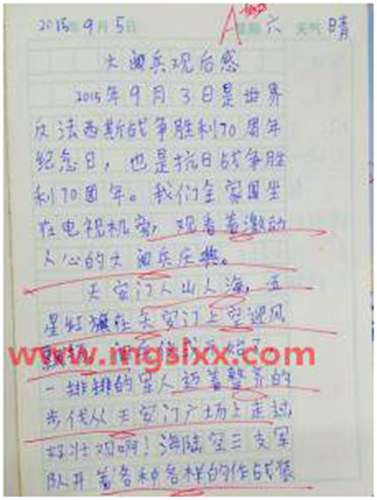 2015年9月5日 星期六 天气晴
A
大阅兵观后感
2015年9月3日是世界
反法西斯战争胜利70周年
纪念日，也是抗日战争胜
利70周年。我们全家围坐
在电视机旁，观看着激动
人心的大阅兵庆典。
天安门人山人海，五
星红旗在天安门上空迎风
飘扬
www.mgslxx.com
一排排的军人迈着整齐的
步伐从天安门广场上走过，
好壮观啊！海陆空三支军
队开着各种各样的作战装